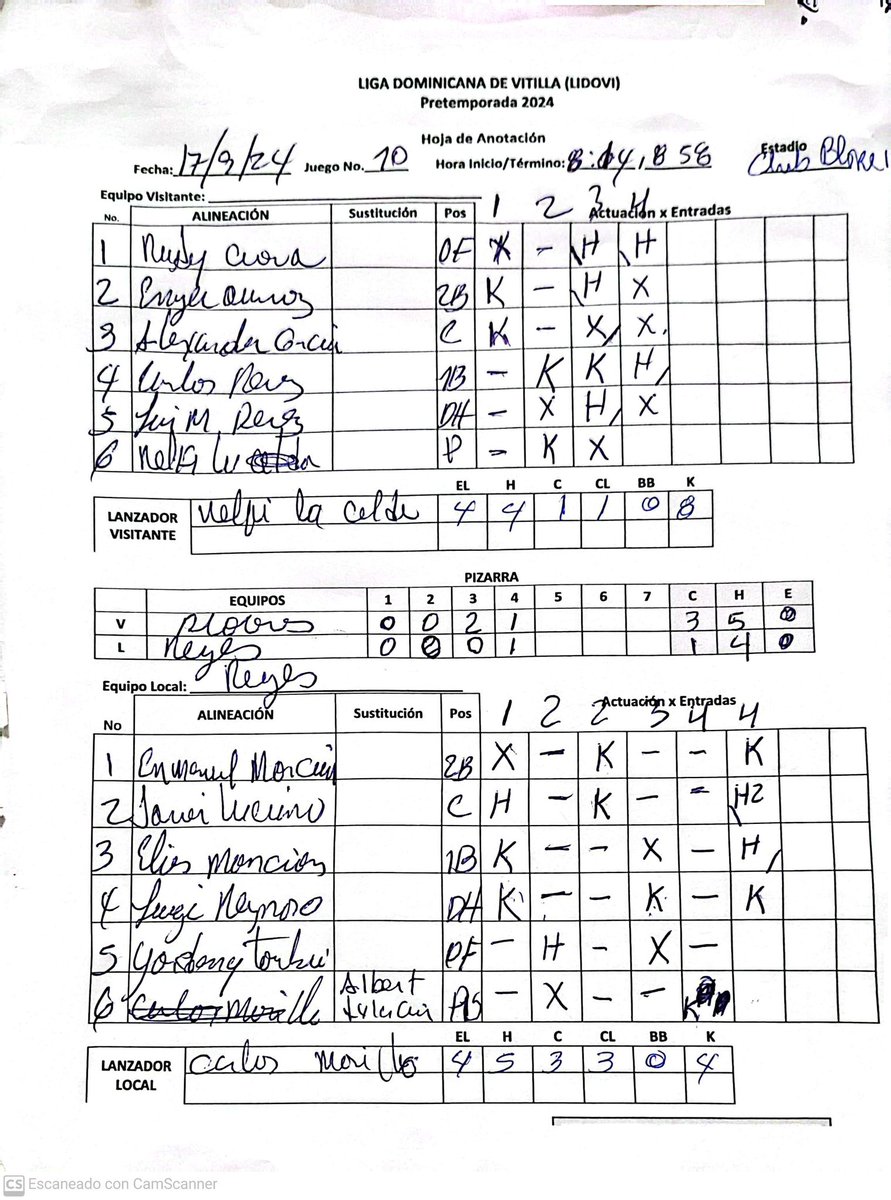 LIGA DOMINICANA DE VITILLA (LIDOVI)
Pretemporada 2024
Hoja de Anotación
Fecha: 17/9/24 Juego No. 10 Hora Inicio/Término: 8:14, 8 58 Estadio Club
Equipo Visitante:
No. ALINEACIÓN Sustitución Pos 1 2 3 4 Actuación x Entradas
1 OF X - H H
2 2B K - H X
3 Alexander C K - X X
4 Carlos Perez 1B - K K H
5 M. Perez DH - X H X
6 P - K X
EL H C CL BB K
LANZADOR VISITANTE la 4 4 1 1 0 8
PIZARRA
EQUIPOS 1 2 3 4 5 6 7 C H E
V 0 0 2 1 3 5 0
L Reyes 0 0 0 1 1 4 0
Equipo Local: Reyes
No ALINEACIÓN Sustitución Pos 1 2 2 3 4 4 Actuación x Entradas
1 2B X - K - - K
2 C H - K - - H2
3 Elias Moncion 1B K - - X - H
4 Reynoso DH K - - K - K
5 OF - H - X -
6 Morillo Albert - X - - K
EL H C CL BB K
LANZADOR LOCAL Carlos Morillo 4 5 3 3 0 4
CS Escaneado con CamScanner